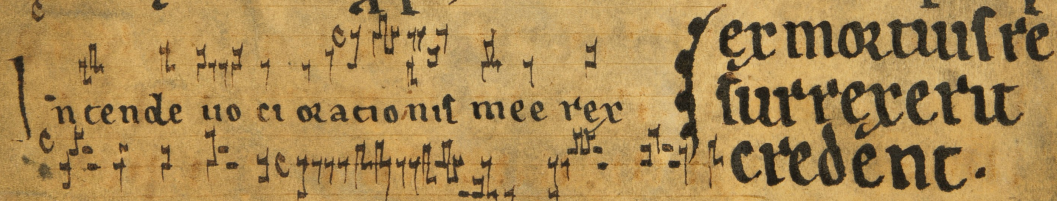 Intende uo ci orationis mee rex
ex mortuis re
surrexerit
credent.